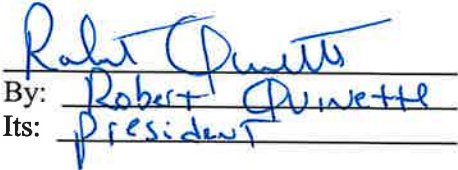 Robert Quinette
By: Robert Quinette
Its: President